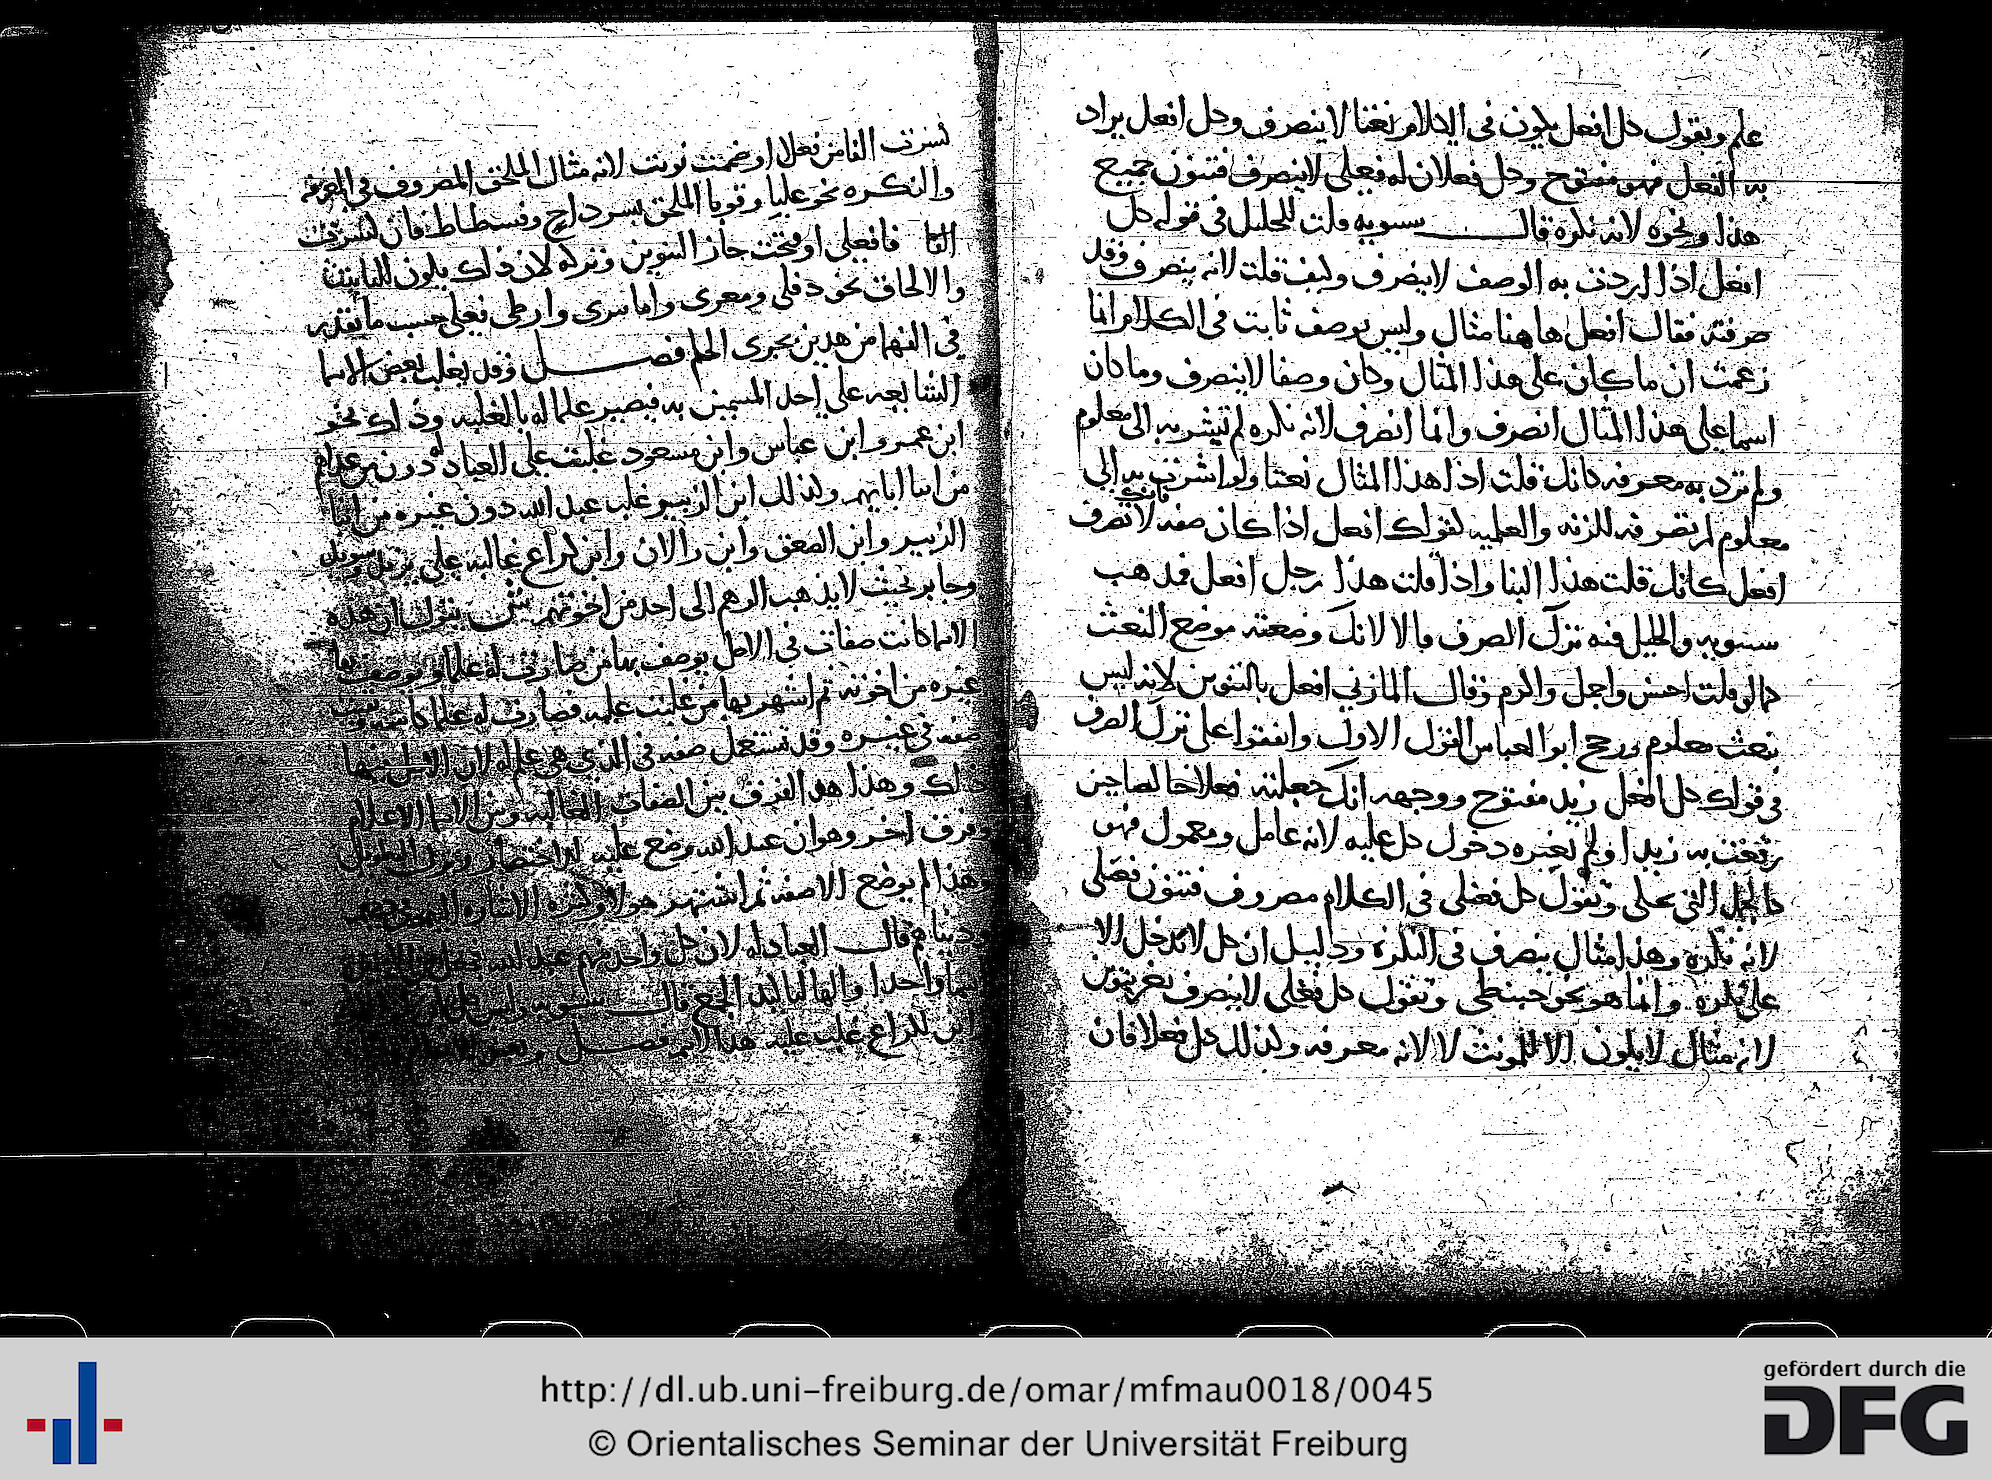 علم وتقول كل افعل يكون في الكلام نعتا لا ينصرف وكل افعل يراد
به الفعل فهو مفتوح وكل فعلان له فعلى لا ينصرف فتنون جميع
هذا ونحوه لانه نكرة قال سيبويه قلت للخليل في قوله كل
افعل اذا اردت به الوصف لا ينصرف وكيف قلت لانه ينصرف وقد
صرفته فقال افعل هاهنا مثال وليس بوصف ثابت في الكلام انما
زعمت ان ما كان على هذا المثال وكان وصفا لا ينصرف وما كان
اسما على هذا المثال انصرف وانما انصرف لانه نكره لم تشر به الى معلوم
ولم ترد به معرفه كانك قلت اذا هذا المثال نعتا ولو اشرت به الى
معلوم لم تصرفه للزنه والعلميه لقولك افعل اذا كان صفه لا تصرف
افعل كانك قلت هذا البنا واذا قلت هذا رجل افعل فمذهب
سيبويه والخليل فيه ترك الصرف لانك وضعته موضع النعت
كما لو قلت احسن واجمل واكرم وقال المازني افعل بالتنوين لانه ليس
بنعت معلوم ورجح ابو العباس القول الاول واتفقوا على ترك الصرف
في قولك كل افعل زيد مفتوح ووجهه انك جعلته فعلا خالصا حين
رفعت به زيدا ولم يغيره دخول كل عليه لانه عامل ومعمول فهو
كالجمل التي تحكى وتقول كل فعلى في الكلام مصروف فتنون فعلى
لانه نكرة وهذا مثال ينصرف في النكرة ودليل ان كل لا تدخل الا
على نكره وانما هو نحو حبنطى وتقول كل فعلى لا ينصرف بغير تنوين
لانه مثال لا يكون الا للمونث لا لانه معرفه ولذلك كل فعلا فان
كسرت الفا من فعلا او ضمت نونت لانه مثال الملحق المصروف في المعرفه
والنكره نحو علبا وقوبا الملحق بسرداح وفسطاط فان كسرت
الفا فافعلى او فتحت جاز التنوين وتركه لان ذلك يكون للتانيث
والالحاق نحو ذفلى ومعزى وارطى فعلى حسب ما تقدر
في الفهما من هدين مجرى الحلم فصل وقد يغلب بعض الاسما
الشايعه على احد المسمين به فيصير علما له بالغلبه وذلك نحو
ابن عمر وابن عباس وابن مسعود غلبت على العبادله دون من عداهم
من ابنا ابايهم وكذلك ابن الزبير غلب عبد الله دون غيره من ابنا
الزبير وابن الصعق وابن رالان وابن كراع غالبه على يزيد وسويد
وجابر بحيث لا يذهب الوهم الى احد من اخوتهم يقول ان هذه
الاسما كانت صفات في الاصل يوصف بها من صارت له علما ويوصف بها
غيره من اخوته ثم اشتهر بها من غلبت عليه فصارت له علما
صفه في غيره وقد تستعمل صفه في الذي هي علم له لان
ذلك وهذا هو الفرق بين الصفات الغالبه وبين الاسما الاعلام
وفرق اخر وهو ان عبد الله وضع عليه
وهذا لم يوضع الا صفه ثم اشتهر
قال العبادله لان كل واحد منهم عبد الله
اسما واحدا الجمع قال سيبويه
ابن كراع غلب عليه هذا الاسم فصل
http://dl.ub.uni-freiburg.de/omar/mfmau0018/0045
© Orientalisches Seminar der Universität Freiburg
gefördert durch die
DFG